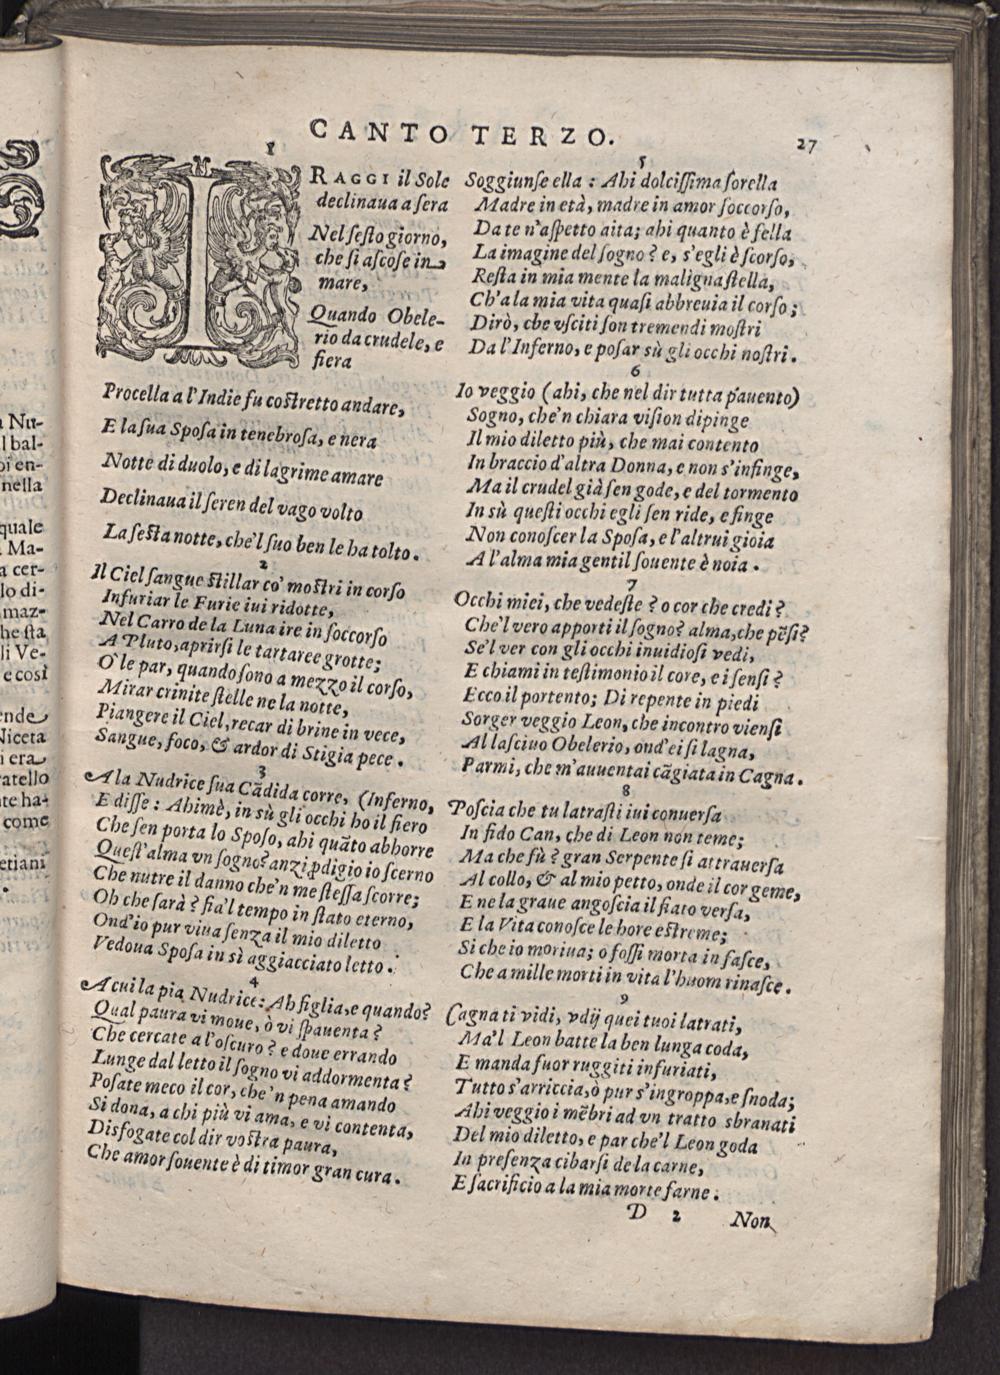 CANTO TERZO.
27
1
I RAGGI il Sole
declinaua a sera
Nel sesto giorno,
che si ascose in
mare,
Quando Obele-
rio da crudele, e
fiera
Procella a l'Indie fu costretto andare,
E la sua Sposa in tenebrosa, e nera
Notte di duolo, e di lagrime amare
Declinaua il seren del vago volto
La sesta notte, che'l suo ben le ha tolto.
2
Il Ciel sangue stillar co' mostri in corso
Infuriar le Furie iui ridotte,
Nel Carro de la Luna ire in soccorso
A Pluto, aprirsi le tartaree grotte;
O' le par, quando sono a mezzo il corso,
Mirar crinite stelle ne la notte,
Piangere il Ciel, recar di brine in vece,
Sangue, foco, & ardor di Stigia pece.
3
A la Nudrice sua Cãdida corre, (Inferno,
E disse: Ahimè, in sù gli occhi ho il fiero
Che sen porta lo Sposo, ahi quãto abhorre
Quest'alma vn sogno? anzi ꝓdigio io scerno
Che nutre il danno che'n me stessa scorre;
Oh che sarà? fia'l tempo in stato eterno,
Ond'io pur viua senza il mio diletto
Vedoua Sposa in sì aggiacciato letto.
4
A cui la pia Nudrice: Ah figlia, e quando?
Qual paura vi moue, ò vi spauenta?
Che cercate a l'oscuro? e doue errando
Lunge dal letto il sogno vi addormenta?
Posate meco il cor, che'n pena amando
Si dona, a chi più vi ama, e vi contenta,
Disfogate col dir vostra paura,
Che amor souente è di timor gran cura.
5
Soggiunse ella: Ahi dolcissima sorella
Madre in età, madre in amor soccorso,
Da te n'aspetto aita; ahi quanto è fella
La imagine del sogno? e, s'egli è scorso,
Resta in mia mente la maligna stella,
Ch'a la mia vita quasi abbreuia il corso;
Dirò, che vsciti son tremendi mostri
Da l'Inferno, e posar sù gli occhi nostri.
6
Io veggio (ahi, che nel dir tutta pauento)
Sogno, che'n chiara vision dipinge
Il mio diletto più, che mai contento
In braccio d'altra Donna, e non s'infinge,
Ma il crudel già sen gode, e del tormento
In sù questi occhi egli sen ride, e finge
Non conoscer la Sposa, e l'altrui gioia
A l'alma mia gentil souente è noia.
7
Occhi miei, che vedeste? o cor che credi?
Che'l vero apporti il sogno? alma, che pẽsi?
Se'l ver con gli occhi inuidiosi vedi,
E chiami in testimonio il core, e i sensi?
Ecco il portento; Di repente in piedi
Sorger veggio Leon, che incontro viensi
Al lasciuo Obelerio, ond'ei si lagna,
Parmi, che m'auuentai cãgiata in Cagna.
8
Poscia che tu latrasti iui conuersa
In fido Can, che di Leon non teme;
Ma che fù? gran Serpente si attrauersa
Al collo, & al mio petto, onde il cor geme,
E ne la graue angoscia il fiato versa,
E la Vita conosce le hore estreme;
Si che io moriua; o fossi morta in fasce,
Che a mille morti in vita l'huom rinasce.
9
Cagna ti vidi, vdij quei tuoi latrati,
Ma'l Leon batte la ben lunga coda,
E manda fuor ruggiti infuriati,
Tutto s'arriccia, ò pur s'ingroppa, e snoda;
Ahi veggio i mẽbri ad vn tratto sbranati
Del mio diletto, e par che'l Leon goda
In presenza cibarsi de la carne,
E sacrificio a la mia morte farne.
D 2 Non
Nu-
l bal-
en-
nella
quale
Ma-
a cer-
lo di-
maz-
he sta
li Ve-
e così
ende
Niceta
i era
atello
te ha-
come
etiani